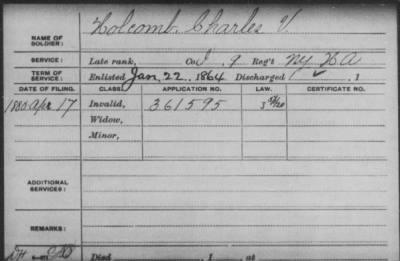 NAME OF SOLDIER: Holcomb, Charles V.
SERVICE: Late rank, Co. I, 9 Reg't NY HA
TERM OF SERVICE: Enlisted Jan, 22., 1864 Discharged , 1
DATE OF FILING. CLASS. APPLICATION NO. LAW. CERTIFICATE NO.
1880 Apr 17 Invalid, 361595
Widow,
Minor,
ADDITIONAL SERVICES:
REMARKS:
Died , 1 , at